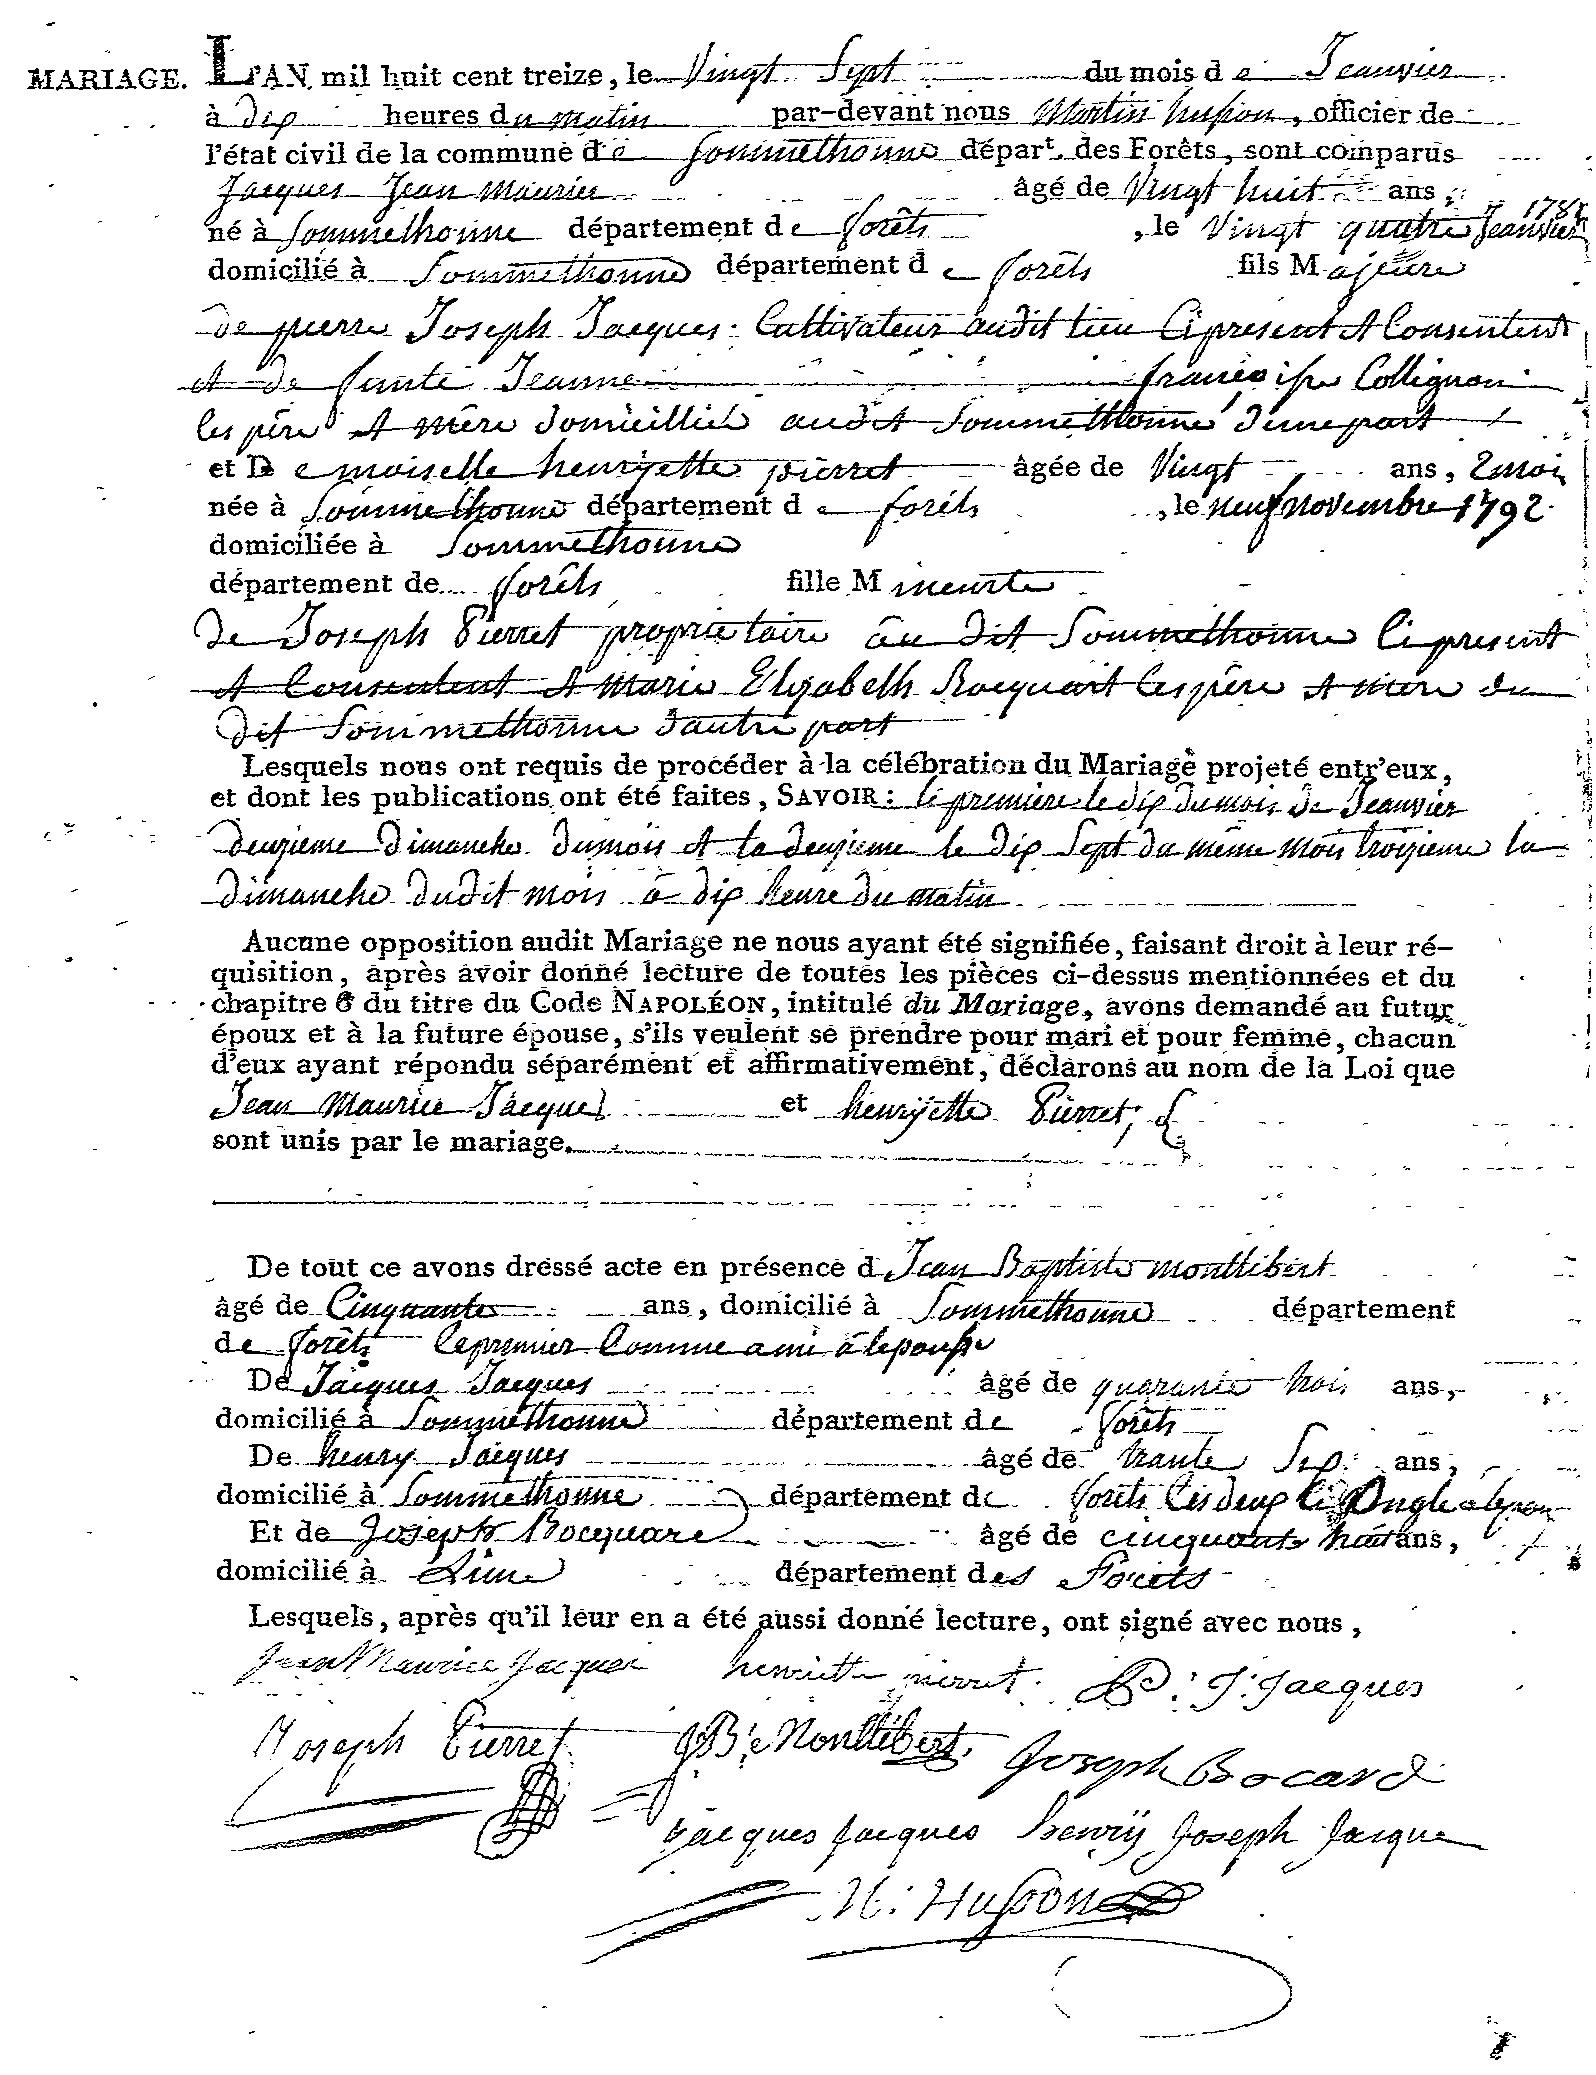 MARIAGE. L'AN mil huit cent treize, le Vingt Sept du mois de Jeanvier
à dix heures du matin par-devant nous Martin husson, officier de
l'état civil de la commune de Sommethonne départ. des Forêts, sont comparus
Jacques Jean Maurice âgé de Vingt huit ans,
né à Sommethonne département de forêts, le Vingt quatre Jeanvier
domicilié à Sommethonne département de forêts fils Majeure
de pierre Joseph Jacques Cultivateur audit lieu Ci present et Consentent
et de funte Jeanne françoise Collignon
ces père et mère domicillié audit Sommethonne d'une part
et Demoiselle henryette pierret âgée de Vingt ans, 2 moi
née à Sommethonne département de forêts, le neuf novembre 1792.
domiciliée à Sommethonne
département de forêts fille Mineurte
de Joseph Pierret proprietaire au dit Sommethonne Ci present
et Consentent et Marie Elizabeth Rocquart Ces père et mere du
dit Sommethonne d'autre part
Lesquels nous ont requis de procéder à la célébration du Mariage projeté entr'eux,
et dont les publications ont été faites, SAVOIR: la première le dix du mois de Jeanvier
deuzieme dimanche du mois et la deuzieme le dix Sept du même mois troizieme la
dimanche dudit mois a dix heure du matin
Aucune opposition audit Mariage ne nous ayant été signifiée, faisant droit à leur ré-
quisition, après avoir donné lecture de toutes les pièces ci-dessus mentionnées et du
chapitre 6 du titre du Code NAPOLÉON, intitulé du Mariage, avons demandé au futur
époux et à la future épouse, s'ils veulent se prendre pour mari et pour femme, chacun
d'eux ayant répondu séparément et affirmativement, déclarons au nom de la Loi que
Jean Maurice Jacques et henryette Pierret,
sont unis par le mariage.
De tout ce avons dressé acte en présence d Jean Baptiste montlibert
âgé de Cinquante ans, domicilié à Sommethonne département
de forêts le premier Comme ami à lepouse
De Jacques Jacques âgé de quarante trois ans,
domicilié à Sommethonne département de forêts
De henry Jacques âgé de trante Sep ans,
domicilié à Sommethonne département de forêts les deux
Et de Joseph Bocquare âgé de cinquante huit ans,
domicilié à département des Forêts
Lesquels, après qu'il leur en a été aussi donné lecture, ont signé avec nous,
Jean Maurice Jacques henriette pierret P: J: Jacques
Joseph Pierret JBte Montlibert Joseph Bocard
Jacques Jacques henrÿ Joseph Jacque
M: Husson